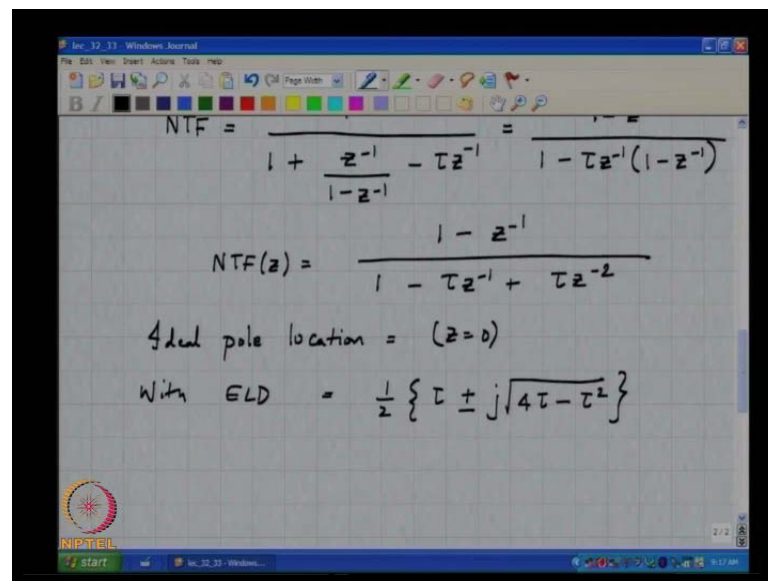 lec_32_33 - Windows Journal
File Edit View Insert Actions Tools Help
Page Width
B I
NTF = 1 / (1 + z^{-1}/(1-z^{-1}) - τz^{-1}) = 1-z^{-1} / (1 - τz^{-1}(1-z^{-1}))
NTF(z) = (1 - z^{-1}) / (1 - τz^{-1} + τz^{-2})
Ideal pole location = (z=0)
With ELD = 1/2 { τ ± j√(4τ-τ²) }
2/2
NPTEL
start lec_32_33 - Windows... 9:17 AM